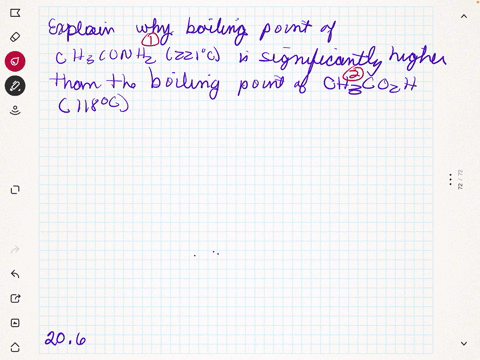 Explain why boiling point of
①
CH3CONH2 (221°C) is significantly higher
②
than the boiling point of CH3CO2H
(118°C)
72 / 72
20.6